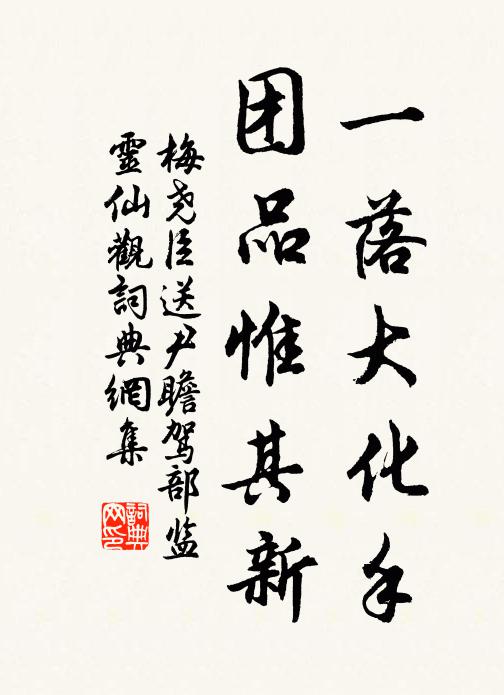 一落大化手
团品惟其新
梅尧臣送尹瞻驾部监
靈仙觀詞典網集
詞典
网印